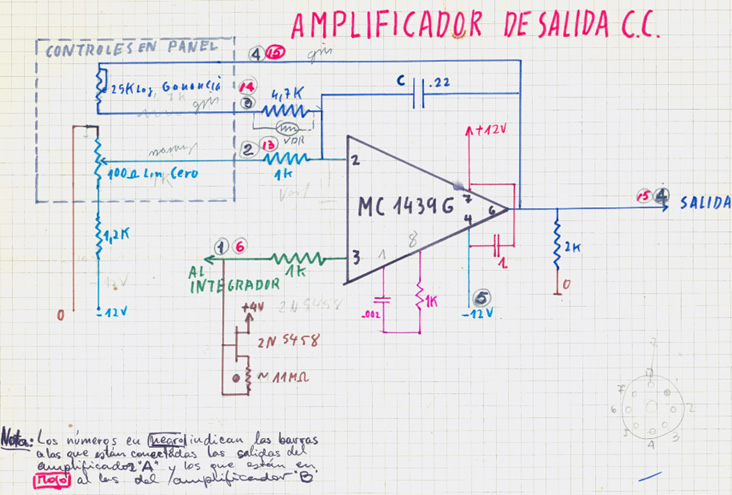 AMPLIFICADOR DE SALIDA C.C.
CONTROLES EN PANEL
4 15 gris
25K Log Ganancia
14
3
gris
4,7K
VDR
C .22
+12V
2 13
100Ω Lin Cero
1K
2
MC 1439G
7
4
6
15 4 SALIDA
1,2K
1 6
AL
INTEGRADOR
1K
3
1
8
1
2K
0
-12V
+4V
2N 5458
.002
1K
5
-12V
0
2N 5458
~11MΩ
7
6
5
4
3
2
Nota: Los números en negro indican las barras
a las que están conectadas las salidas del
amplificador "A" y los que están en
rojo a las del amplificador "B"